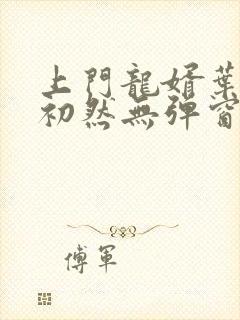 上門龍婿葉
初然無彈窗
傅軍